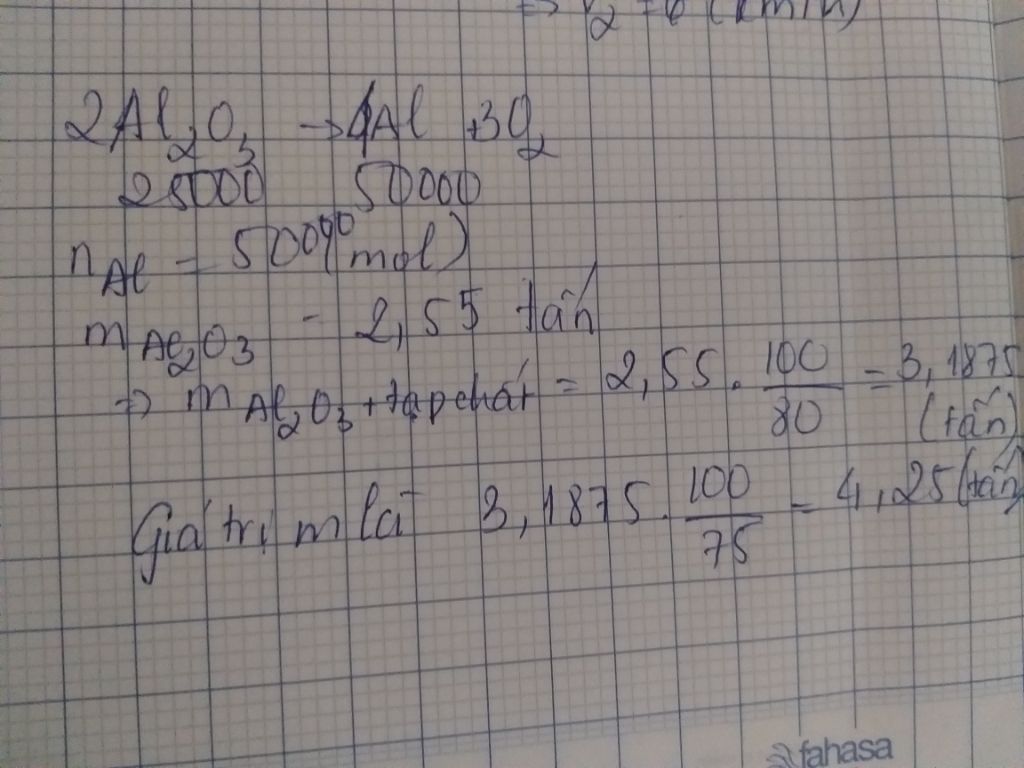 2Al₂O₃ → 4Al + 3O₂
25000 50000
nAl = 50000 (mol)
mAl₂O₃ = 2,55 tấn
=> mAl₂O₃ + tạp chất = 2,55 . 100/80 = 3,1875 (tấn)
Giá trị m là 3,1875 . 100/75 = 4,25 (tấn)
fahasa